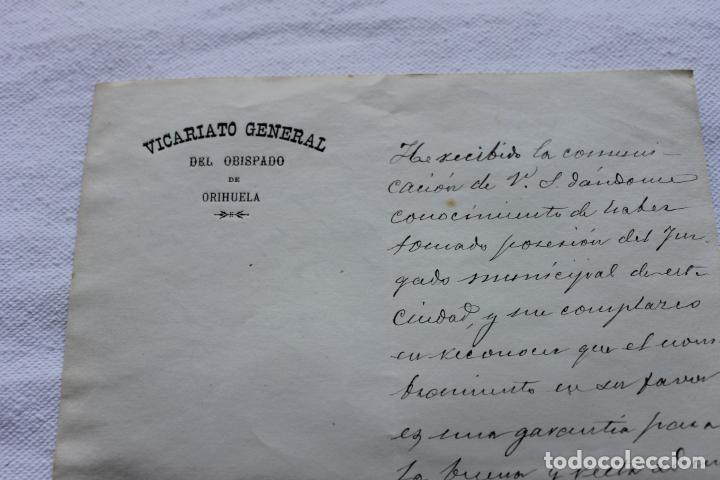 VICARIATO GENERAL
DEL OBISPADO
DE
ORIHUELA
He recibido la comuni-
cación de V. S. dándome
conocimiento de haber
tomado posesión del Juz-
gado municipal de esta
Ciudad, y me complazco
en reconocer que el nom-
bramiento en su favor
es una garantía para
la buena y recta
todocoleccion.net